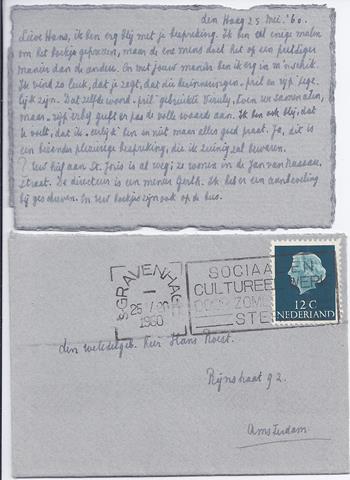 den Haag 25 Mei. '60.
Lieve Hans, ik ben erg blij met je bespreking. Ik ben al enige malen
om het boekje geprezen, maar de ene mens doet het op een prettiger
manier dan de andere. En met jouw manier ben ik erg in m'n schik.
Ik vind zo leuk, dat je zegt, dat die herinneringen pril en rijp
lijk zijn. Dat zelfde woord pril gebruikte Viruly, toen we samen aten,
maar rijp erbij geeft er pas de volle waarde aan. Ik ben ook blij, dat
je voelt, dat ik eerlijk ben en niet maar alles goed praat. Ja, dit is
een bijzonder plezierige bespreking, die ik zuinig zal bewaren.
? Uw brief aan St. Joris is al weg; ze wonen in de Jan van Nassau
straat. De directeur is een meneer Gerth. Ik heb er een aanbeveling
bij geschreven. En uw boekjes zijn ook op de bus.
'S GRAVENHAGE
25 V
1960
SOCIAA EN
CULTUREEL WERK
DOOR ZOME
STE
12 C
NEDERLAND
den weledelgeb. Heer Hans Roest.
Rijnstraat 92.
Amsterdam.